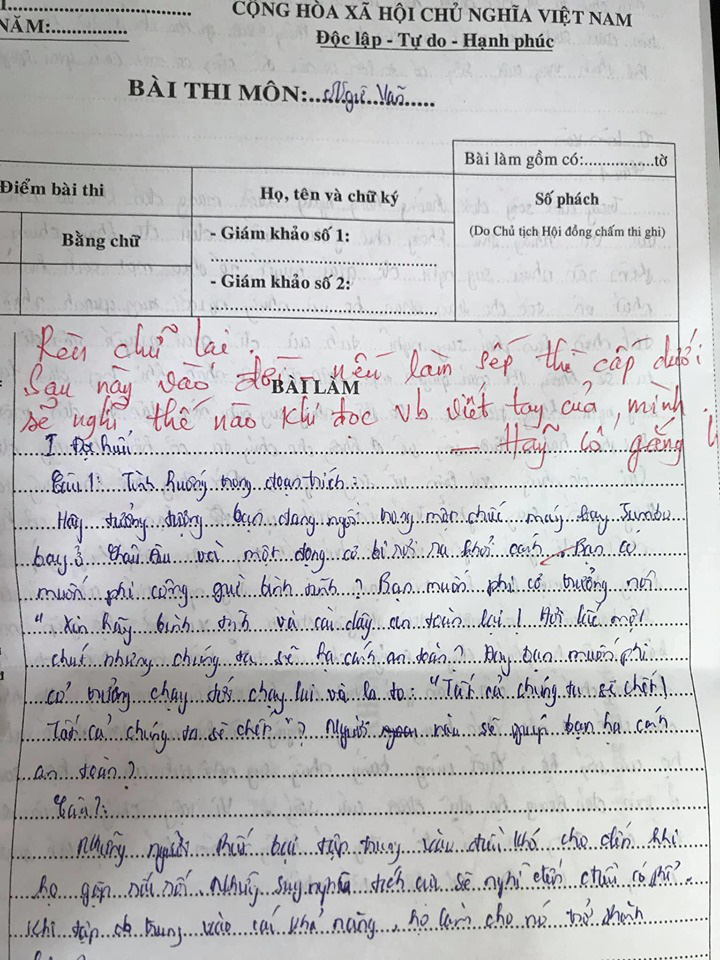 CỘNG HÒA XÃ HỘI CHỦ NGHĨA VIỆT NAM
NĂM:...............
Độc lập - Tự do - Hạnh phúc
BÀI THI MÔN:..Ngữ Văn.....
Bài làm gồm có:...............tờ
Điểm bài thi
Họ, tên và chữ ký
Số phách
(Do Chủ tịch Hội đồng chấm thi ghi)
Bằng chữ
- Giám khảo số 1:
- Giám khảo số 2:
Rèn chữ lại.
Sau này vào đời nếu làm sếp thì cấp dưới
BÀI LÀM
sẽ nghĩ thế nào khi đọc vb viết tay của mình.
— Hãy cố gắng
I Đọc hiểu
Câu 1: Tình huống trong đoạn trích:
Hãy tưởng tượng bạn đang ngồi trong một chiếc máy bay Jumbo
bay ở Châu Âu và một động cơ bị rơi ra khỏi cánh. Bạn có
muốn phi công bình tĩnh? Bạn muốn phi cơ trưởng nói
"Xin hãy bình tĩnh và cài dây an toàn lại! Hơi lắc một
chút nhưng chúng ta sẽ hạ cánh an toàn? Hay bạn muốn phi
cơ trưởng chạy tới chạy lui và la to: "Tất cả chúng ta sẽ chết!
Tất cả chúng ta sẽ chết"? Người nào sẽ giúp bạn hạ cánh
an toàn?
Câu 2:
Những người thất bại tập trung vào khó cho đến khi
họ gặp Những suy nghĩ sẽ nghĩ đến
Khi tập trung vào cái khả năng, họ làm cho nó trở thành